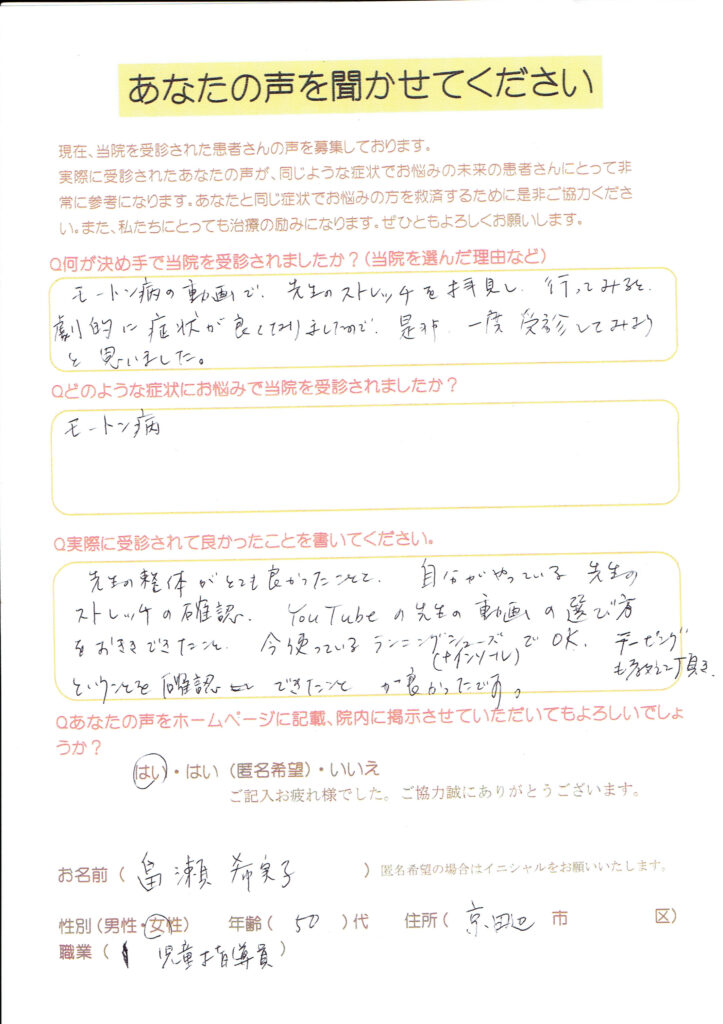 あなたの声を聞かせてください
現在、当院を受診された患者さんの声を募集しております。
実際に受診されたあなたの声が、同じような症状でお悩みの未来の患者さんにとって非
常に参考になります。あなたと同じ症状でお悩みの方を救済するために是非ご協力くださ
い。また、私たちにとっても治療の励みになります。ぜひともよろしくお願いします。
Q何が決め手で当院を受診されましたか？(当院を選んだ理由など)
モートン病の動画で、先生のストレッチを拝見し、行ってみると、
劇的に症状が良くなりましたので、是非、一度受診してみよう
と思いました。
Qどのような症状にお悩みで当院を受診されましたか？
モートン病
Q実際に受診されて良かったことを書いてください。
先生の整体がとても良かったことと、自分がやっている先生の
ストレッチの確認、YouTubeの先生の動画の選び方
をおききできたこと、今使っているランニングシューズでOK、テーピング
(+インソール)
も教えて頂き
ということを確認できたことが良かったです。
Qあなたの声をホームページに記載、院内に掲示させていただいてもよろしいでしょ
うか？
はい・はい（匿名希望）・いいえ
ご記入お疲れ様でした。ご協力誠にありがとうございます。
お名前（畠瀬 希実子）匿名希望の場合はイニシャルをお願いいたします。
性別（男性・女性） 年齢（50）代 住所（京田辺市 区）
職業（児童指導員）